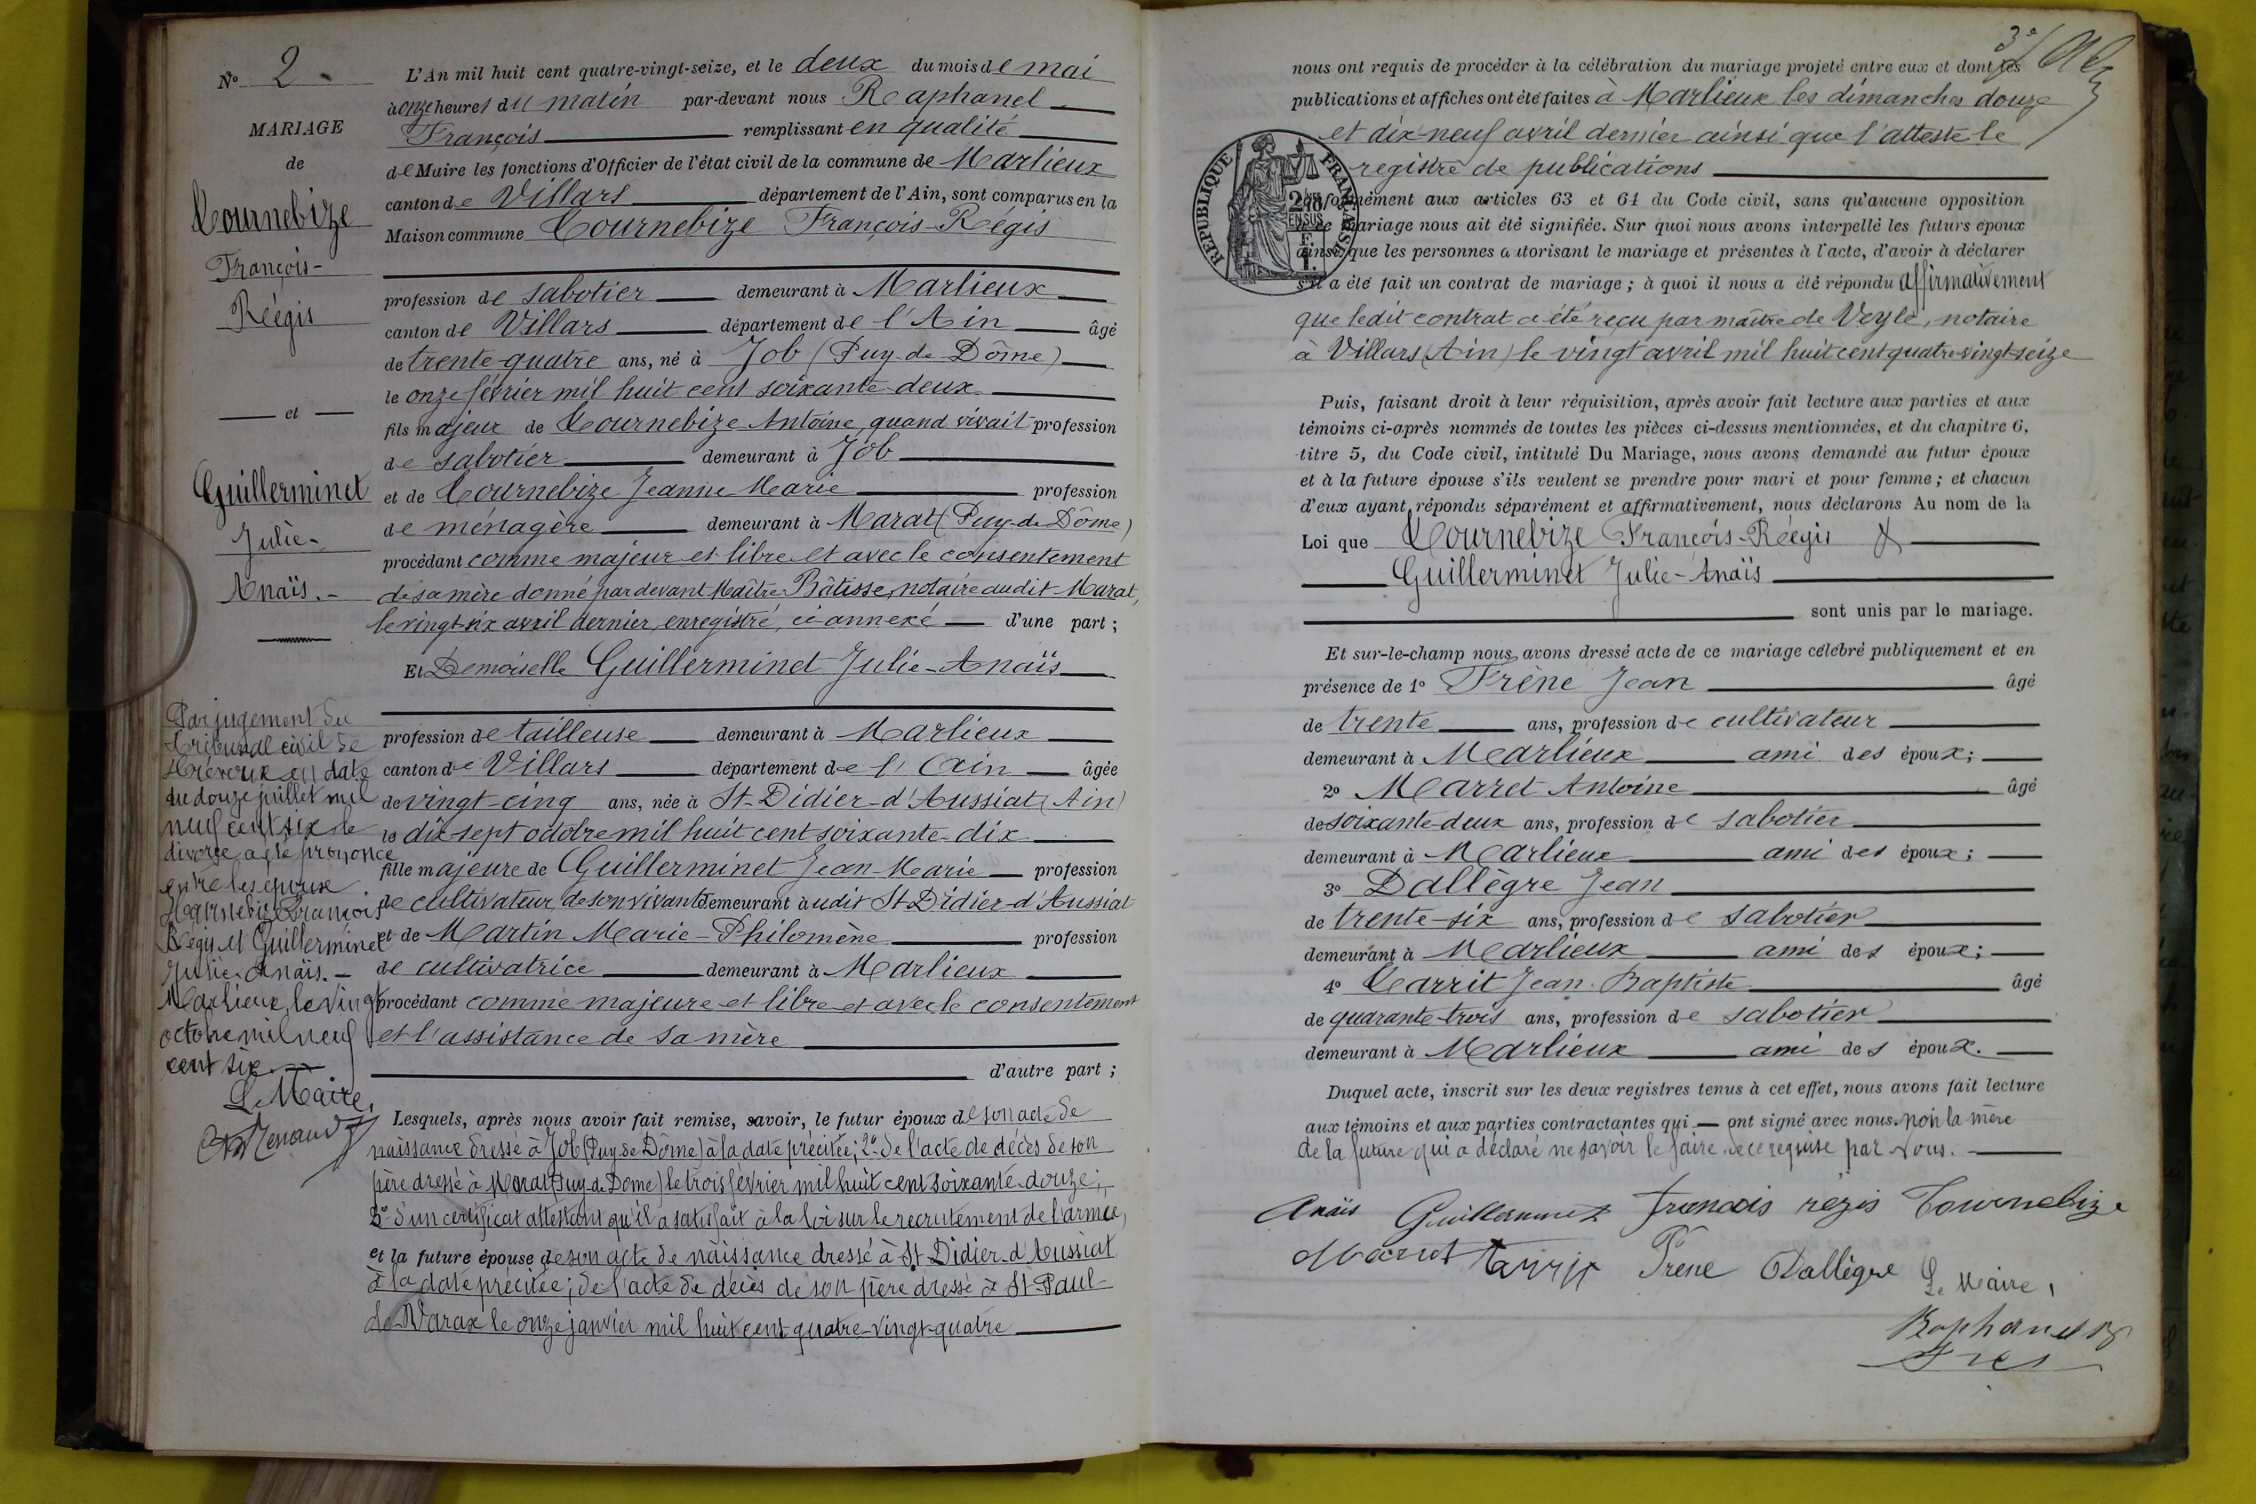 N° 2.
MARIAGE
de
Tournebize
François-
Régis
et
Guillerminet
Julie-
Anaïs.-
Par jugement du
tribunal civil de
Trévoux en date
du douze juillet mil
neuf cent six le
divorce a été prononcé
entre les époux
Tournebize François
Régis et Guillerminet
Julie-Anaïs.-
Marlieux, le vingt
octobre mil neuf
cent six.
Le Maire,
L'An mil huit cent quatre-vingt-seize, et le deux du mois de mai
à onze heures du matin par-devant nous Raphanel
François remplissant en qualité
de Maire les fonctions d'Officier de l'état civil de la commune de Marlieux
canton de Villars département de l'Ain, sont comparus en la
Maison commune Tournebize François-Régis
profession de sabotier demeurant à Marlieux
canton de Villars département de l'Ain âgé
de trente-quatre ans, né à Job (Puy-de-Dôme)
le onze février mil huit cent soixante-deux
fils majeur de Tournebize Antoine, quand vivait profession
de sabotier demeurant à Job
et de Tournebize Jeanne Marie profession
de ménagère demeurant à Marat (Puy-de-Dôme)
procédant comme majeur et libre et avec le consentement
de sa mère donné par devant Maître Bâtisse, notaire audit Marat,
le vingt-six avril dernier, enregistré, ci-annexé d'une part ;
Et Demoiselle Guillerminet Julie-Anaïs
profession de tailleuse demeurant à Marlieux
canton de Villars département de l'Ain âgée
de vingt-cinq ans, née à St-Didier-d'Aussiat (Ain)
le dix sept octobre mil huit cent soixante-dix
fille majeure de Guillerminet Jean-Marie profession
de cultivateur, de son vivant demeurant audit St Didier-d'Aussiat
et de Martin Marie-Philomène profession
de cultivatrice demeurant à Marlieux
procédant comme majeure et libre et avec le consentement
et l'assistance de sa mère
d'autre part ;
Lesquels, après nous avoir fait remise, savoir, le futur époux de son acte de
naissance dressé à Job (Puy de Dôme) à la date précitée ; 2° de l'acte de décès de son
père dressé à Marat (Puy-de-Dôme) le trois février mil huit cent soixante-douze ;
3° d'un certificat attestant qu'il a satisfait à la loi sur le recrutement de l'armée,
et la future épouse de son acte de naissance dressé à St Didier-d'Aussiat
à la date précitée ; de l'acte de décès de son père dressé à St-Paul-
de-Varax le onze janvier mil huit cent quatre-vingt-quatre
nous ont requis de procéder à la célébration du mariage projeté entre eux et dont les
publications et affiches ont été faites à Marlieux les dimanches douze
et dix-neuf avril dernier ainsi que l'atteste le
registre de publications
RÉPUBLIQUE FRANÇAISE
conformément aux articles 63 et 64 du Code civil, sans qu'aucune opposition
à ce mariage nous ait été signifiée. Sur quoi nous avons interpellé les futurs époux
ainsi que les personnes autorisant le mariage et présentes à l'acte, d'avoir à déclarer
s'il a été fait un contrat de mariage ; à quoi il nous a été répondu affirmativement
que ledit contrat a été reçu par maître de Veyle, notaire
à Villars (Ain) le vingt avril mil huit cent quatre-vingt-seize
Puis, faisant droit à leur réquisition, après avoir fait lecture aux parties et aux
témoins ci-après nommés de toutes les pièces ci-dessus mentionnées, et du chapitre 6,
titre 5, du Code civil, intitulé Du Mariage, nous avons demandé au futur époux
et à la future épouse s'ils veulent se prendre pour mari et pour femme ; et chacun
d'eux ayant répondu séparément et affirmativement, nous déclarons Au nom de la
Loi que Tournebize François-Régis &
Guillerminet Julie-Anaïs
sont unis par le mariage.
Et sur-le-champ nous avons dressé acte de ce mariage célébré publiquement et en
présence de 1° Frène Jean âgé
de trente ans, profession de cultivateur
demeurant à Marlieux ami des époux ;
2° Marret Antoine âgé
de soixante-deux ans, profession de sabotier
demeurant à Marlieux ami des époux ;
3° Dallègre Jean
de trente-six ans, profession de sabotier
demeurant à Marlieux ami des époux ;
4° Tarrit Jean-Baptiste âgé
de quarante-trois ans, profession de sabotier
demeurant à Marlieux ami des époux.
Duquel acte, inscrit sur les deux registres tenus à cet effet, nous avons fait lecture
aux témoins et aux parties contractantes qui ont signé avec nous, non la mère
de la future qui a déclaré ne savoir le faire de ce requise par Nous.
Anaïs Guillerminet francois régis Tournebize
Marret Tarrit Frene Dallègre Le Maire,
Raphanel